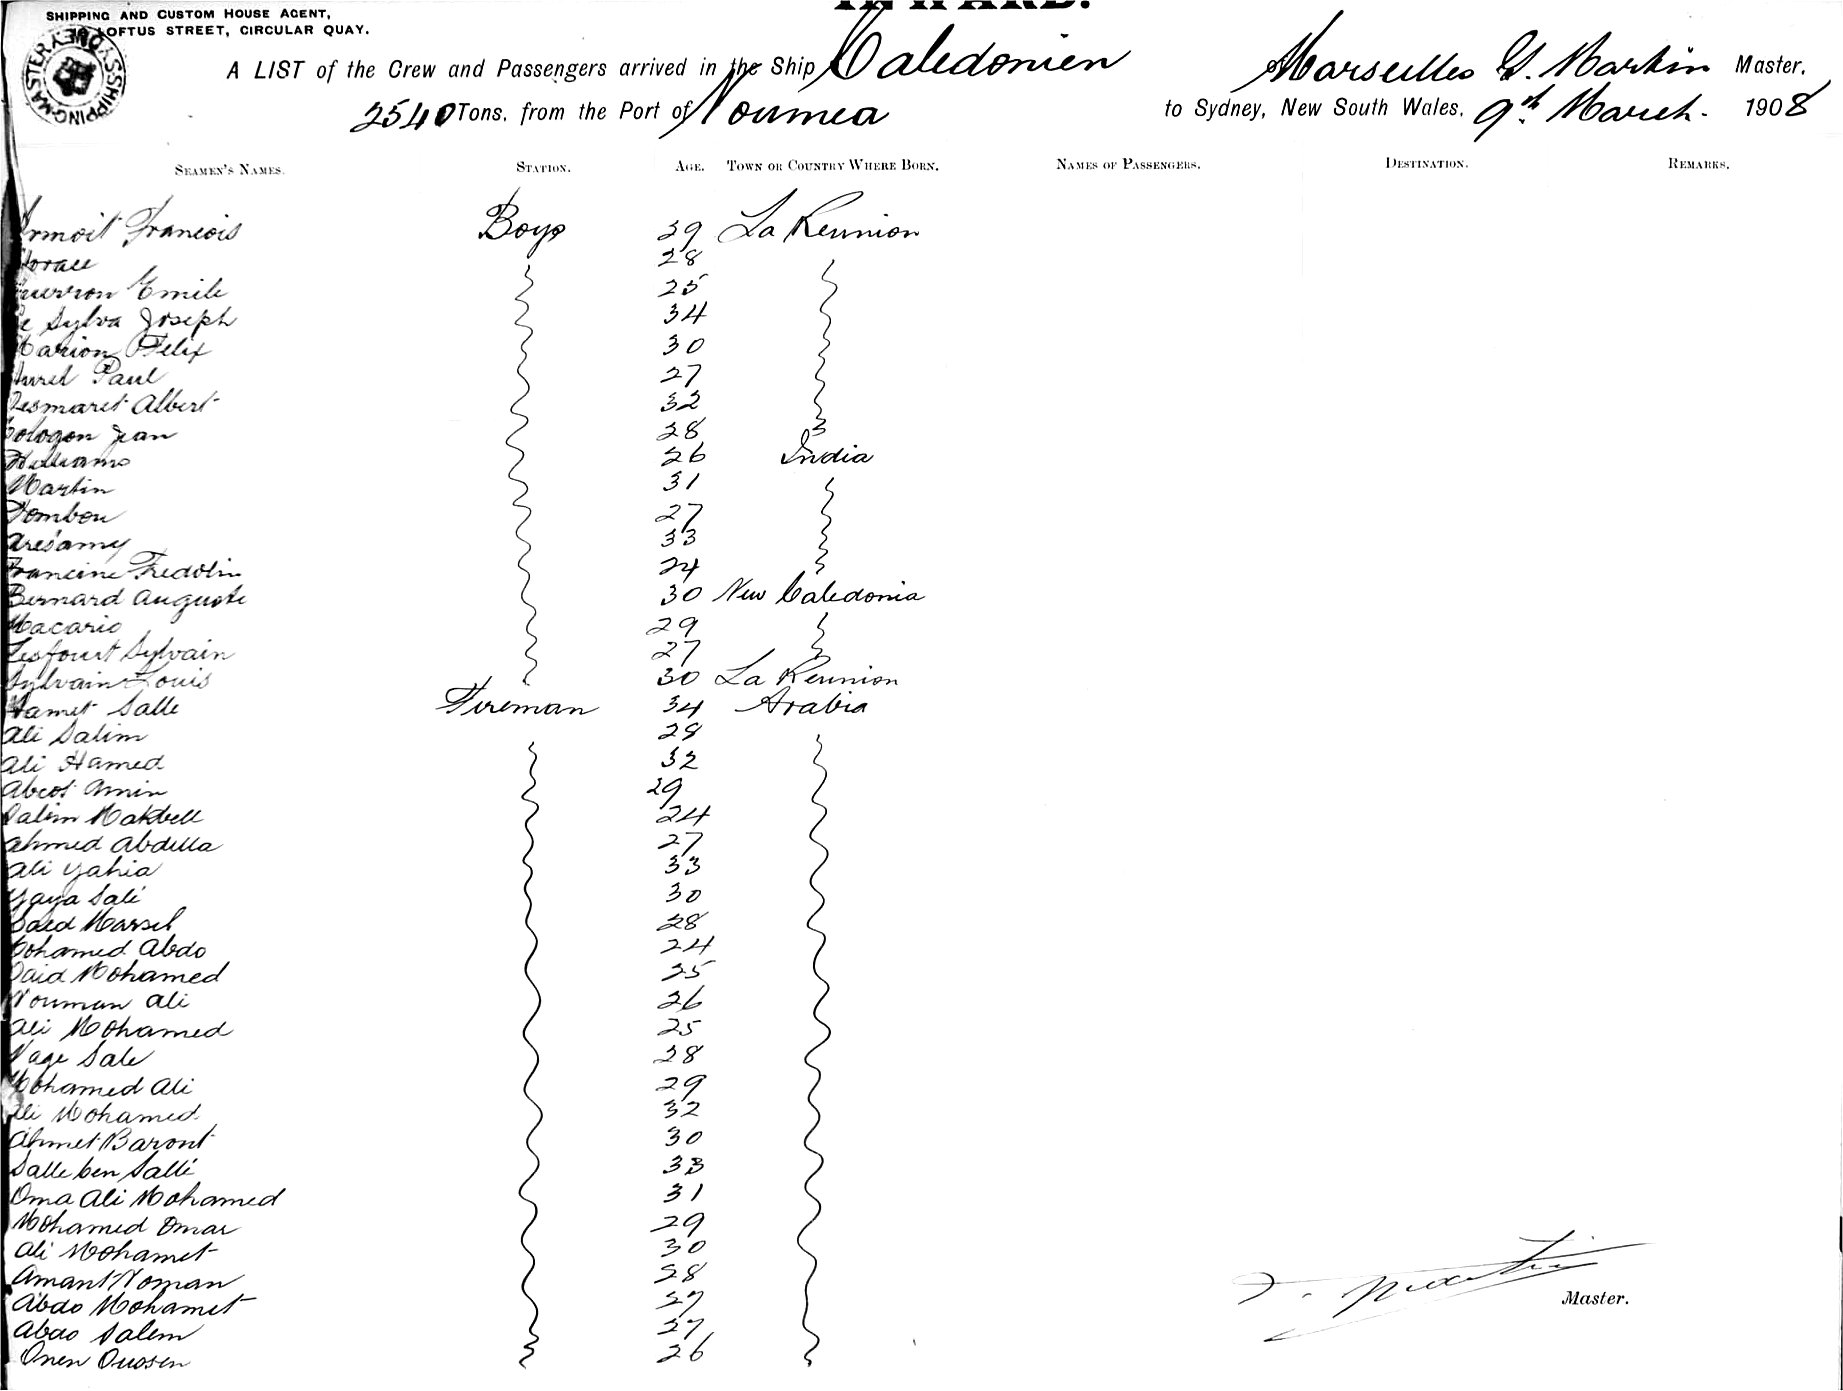 IN WARD.
SHIPPING AND CUSTOM HOUSE AGENT,
LOFTUS STREET, CIRCULAR QUAY.
SHIPPING MASTER SYDNEY
A LIST of the Crew and Passengers arrived in the Ship Caledonien Marseilles Martin Master,
2540 Tons, from the Port of Noumea to Sydney, New South Wales, 9th March. 1908
SEAMEN'S NAMES. STATION. AGE. TOWN OR COUNTRY WHERE BORN. NAMES OF PASSENGERS. DESTINATION. REMARKS.
Francois Boys 39 La Reunion
28
Emile 25
Sylva Joseph 34
Marion Felix 30
Paul 27
Desmaret Albert 32
Jean 28
Williams 26 India
Martin 31
27
33
Francine Fredolin 24
Bernard Auguste 30 New Caledonia
Macario 29
Sylvain 27
Sylvain Louis 30 La Reunion
Hamet Salle Fireman 34 Arabia
Ali Salim 28
Ali Hamed 32
Amin 29
Salim 24
Ahmed Abdella 27
Ali Yahia 33
Yaya Salé 30
Saed 28
Mohamed Abdo 24
Said Mohamed 25
Nouman Ali 26
Ali Mohamed 25
Nage Sale 28
Mohamed Ali 29
Ali Mohamed 32
Ahmet Baront 30
Salle ben Sallé 33
Oma Ali Mohamed 31
Mohamed Omar 29
Ali Mohamet 30
Amant Noman 28
Abdo Mohamet 27
Abdo Salem 27
Onen Ouosen 26
Master.